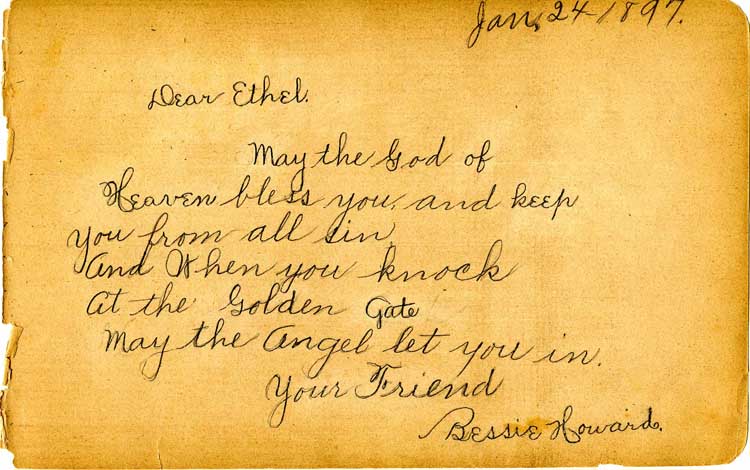 Jan. 24-1897.
Dear Ethel.
May the God of
Heaven bless you, and keep
you from all sin,
And When you knock
At the Golden Gate
May the Angel let you in.
Your Friend
Bessie Howard.